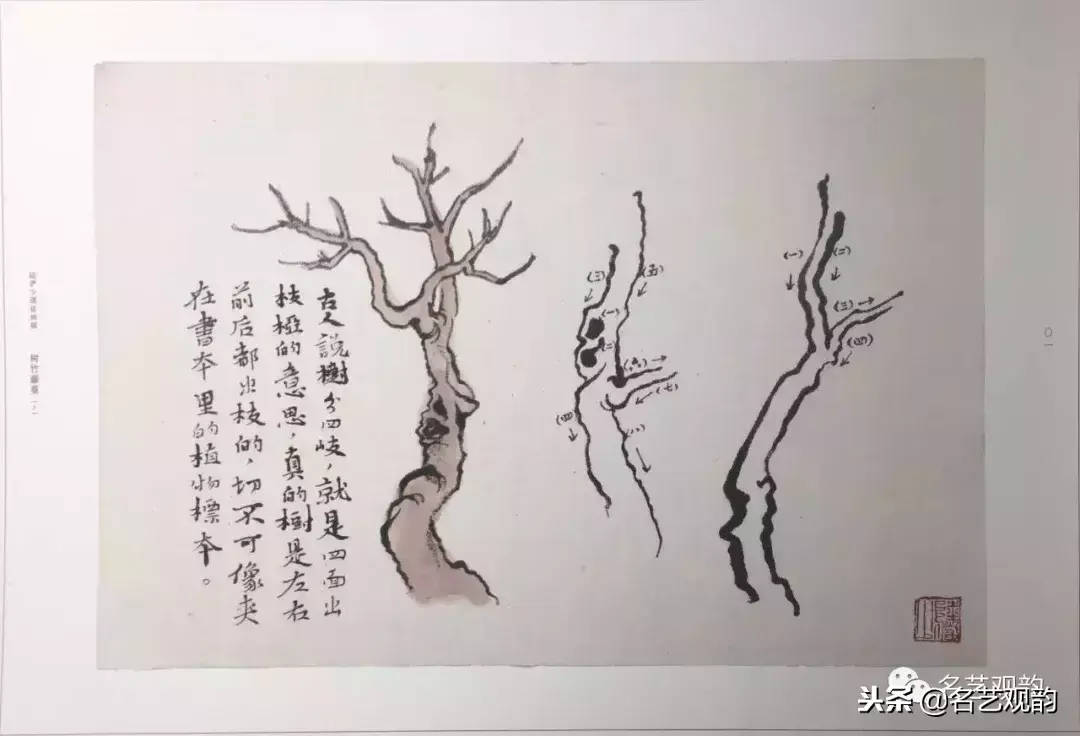 古人說樹分四歧，就是四面出
枝椏的意思，真的樹是左右
前后都出枝的，切不可像夾
在書本里的植物標本。
(三)
(五)
(一)
(二)
(六)
(七)
(四)
(八)
(一)
(二)
(三)
(四)
树竹藤蔓
〇一
名艺观韵
头条 @名艺观韵